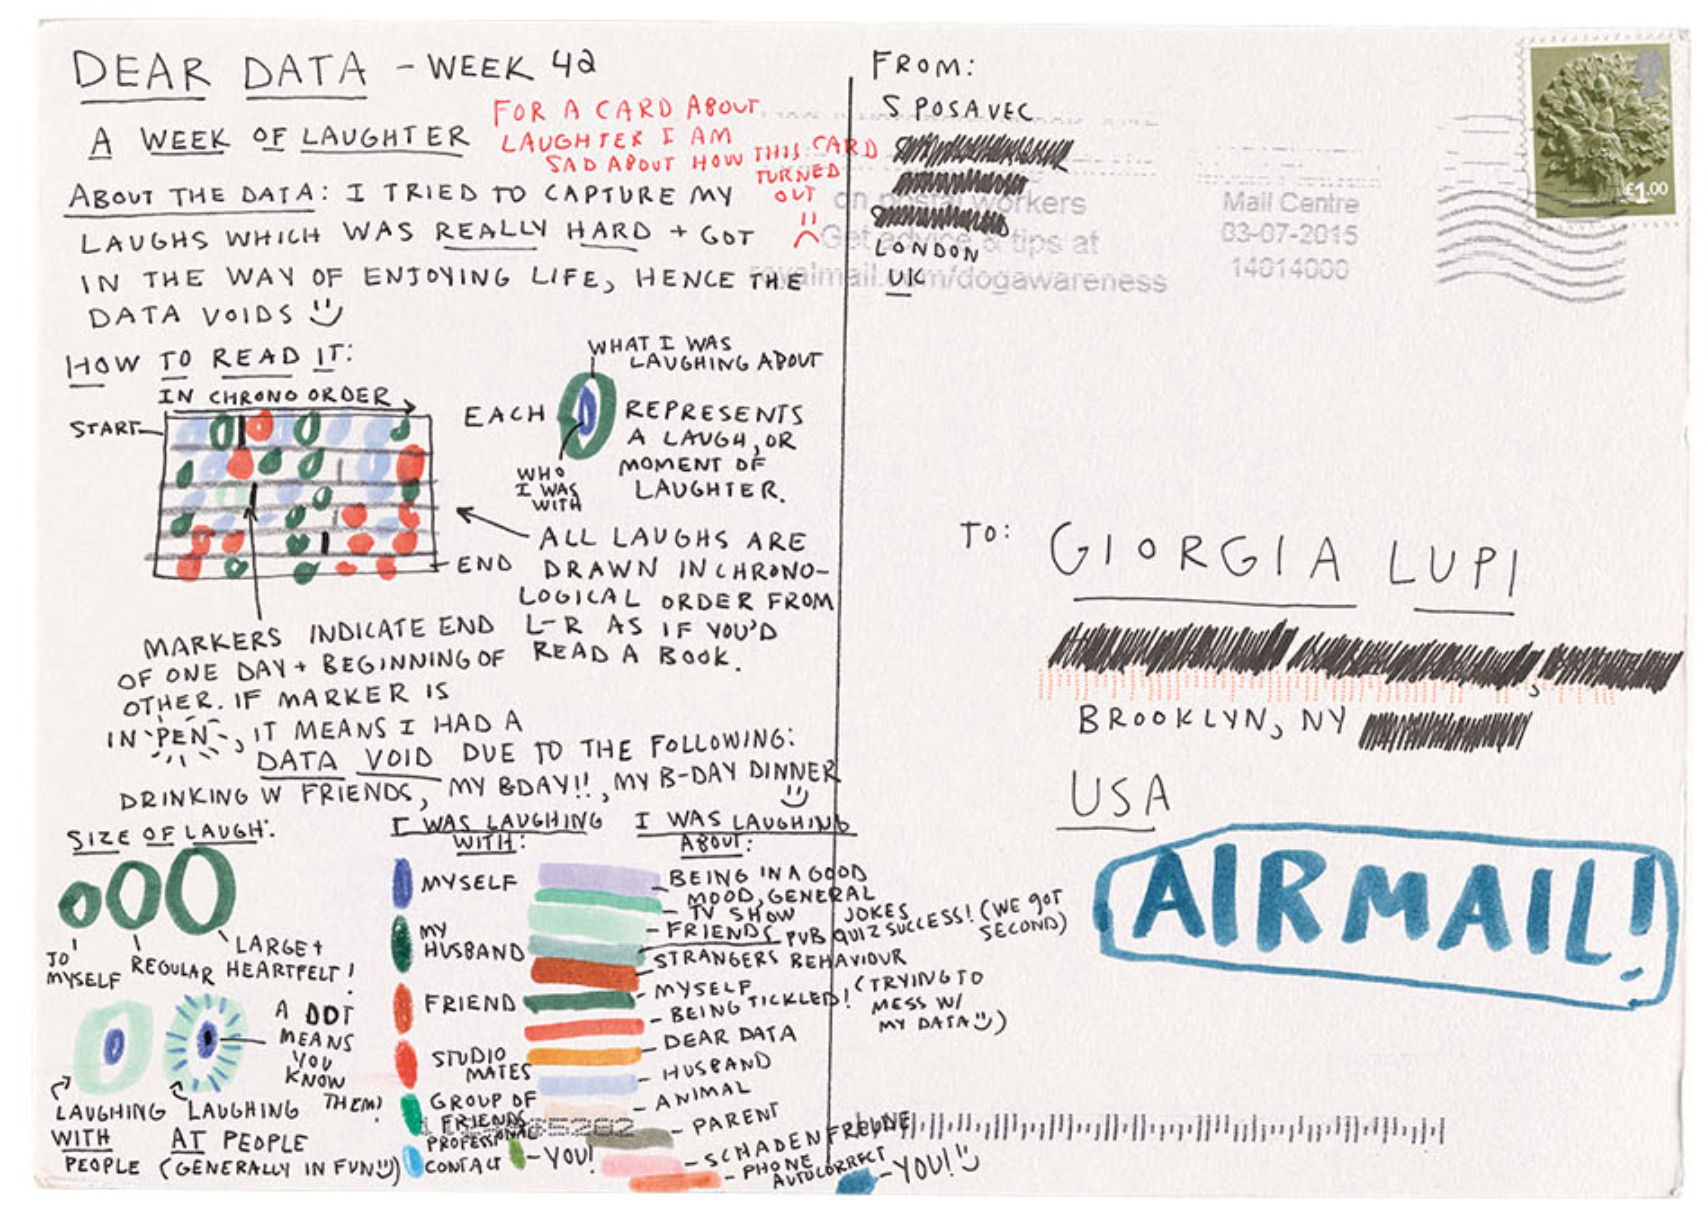 DEAR DATA - WEEK 42
A WEEK OF LAUGHTER
FOR A CARD ABOUT
LAUGHTER I AM
SAD ABOUT HOW THIS CARD
TURNED
OUT
ABOUT THE DATA: I TRIED TO CAPTURE MY
LAUGHS WHICH WAS REALLY HARD + GOT
IN THE WAY OF ENJOYING LIFE, HENCE THE
DATA VOIDS
HOW TO READ IT:
IN CHRONO ORDER
START
END
WHAT I WAS
LAUGHING ABOUT
EACH
REPRESENTS
A LAUGH, OR
MOMENT OF
LAUGHTER.
WHO
I WAS
WITH
ALL LAUGHS ARE
DRAWN IN CHRONO-
LOGICAL ORDER FROM
L-R AS IF YOU'D
READ A BOOK.
MARKERS INDICATE END
OF ONE DAY + BEGINNING OF
OTHER. IF MARKER IS
IN PEN, IT MEANS I HAD A
DATA VOID DUE TO THE FOLLOWING:
DRINKING W FRIENDS, MY BDAY!!, MY B-DAY DINNER
SIZE OF LAUGH:
TO
MYSELF
REGULAR
LARGE +
HEARTFELT!
A DOT
MEANS
YOU
KNOW
THEM!
LAUGHING
WITH
PEOPLE
LAUGHING
AT PEOPLE
(GENERALLY IN FUN)
I WAS LAUGHING
WITH:
MYSELF
MY
HUSBAND
FRIEND
STUDIO
MATES
GROUP OF
FRIENDS
PROFESSIONAL
CONTACT
YOU!
I WAS LAUGHING
ABOUT:
BEING IN A GOOD
MOOD, GENERAL
TV SHOW JOKES
FRIENDS PUB QUIZ SUCCESS! (WE GOT
SECOND)
STRANGERS BEHAVIOUR
MYSELF
BEING TICKLED! (TRYING TO
MESS W/
MY DATA)
DEAR DATA
HUSBAND
ANIMAL
PARENT
SCHADENFREUDE
PHONE
AUTOCORRECT
YOU!
FROM:
S POSAVEC
LONDON
UK
on postal workers
Get advice & tips at
royalmail.com/dogawareness
Mail Centre
03-07-2015
14014000
£1.00
TO:
GIORGIA LUPI
BROOKLYN, NY
USA
AIRMAIL!